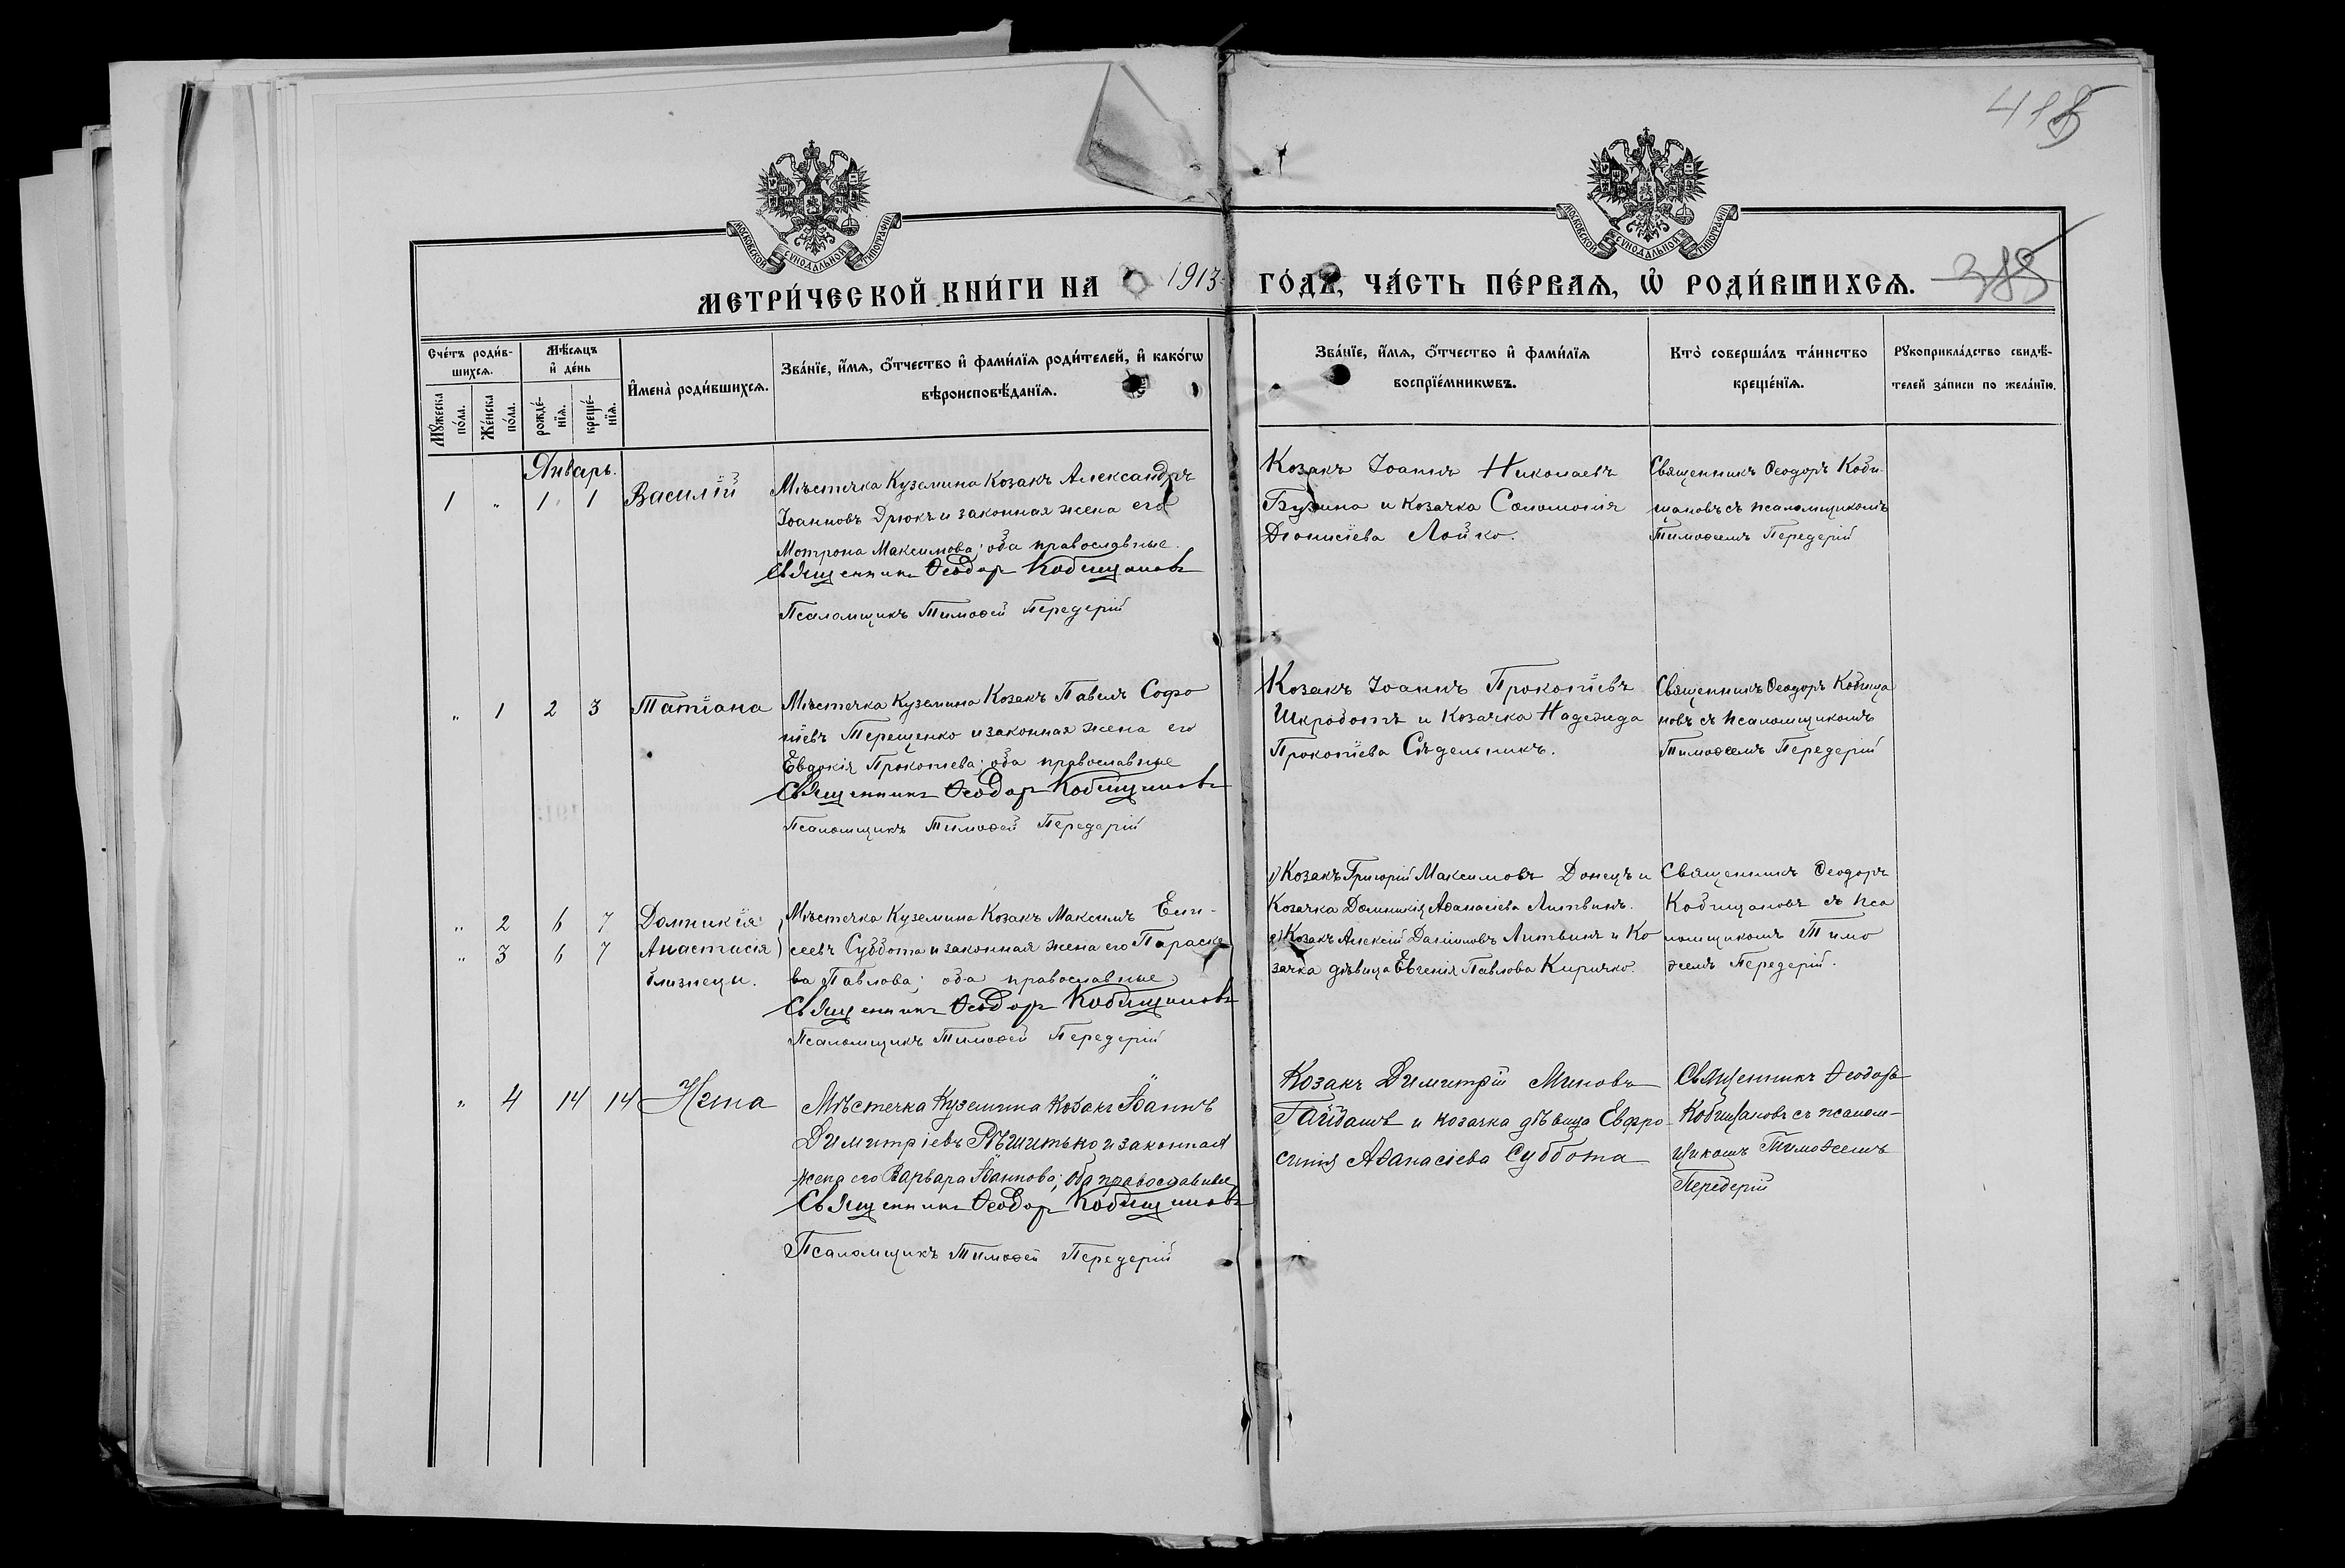 415
МОСКОВСКОЙ СѴНОДАЛЬНОЙ ТИПОГРАФІИ
МОСКОВСКОЙ СѴНОДАЛЬНОЙ ТИПОГРАФІИ
МЕТРИ́ЧЕСКОЙ КНИ́ГИ НА 1913 ГО́ДЪ, ЧА́СТЬ ПЕ́РВАѦ, Ѡ҆ РОДИ́ВШИХСѦ.
Сче́тъ роди́в-
шихсѧ.
Мꙋ́жеска по́ла.
Же́нска по́ла.
Мѣ́сѧцъ
и҆ де́нь
рожде́-нїѧ.
креще́-нїѧ.
И҆мена̀ роди́вшихсѧ.
Зва́нїе, и҆́мѧ, ѻ҆́тчество и҆ фами́лїѧ роди́телей, и҆ како́гѡ
вѣроисповѣ́данїѧ.
Зва́нїе, и҆́мѧ, ѻ҆́тчество и҆ фами́лїѧ
воспрїе́мникѡвъ.
Кто̀ соверша́лъ та́инство
креще́нїѧ.
Рꙋкоприкла́дство свидѣ́-
телей за́писи по жела́нїю.
Январь.
1 " 1 1 Василій
Мѣстечка Куземина Козакъ Александръ
Іоанновъ Дрюкъ и законная жена его
Мотрона Максимова; оба православные.
Священникъ Ѳеодоръ Кобищановъ
Псаломщикъ Тимоѳей Передерій
Козакъ Іоаннъ Николаевъ
и Козачка Соломонія
Діонисіева Лойко.
Священникъ Ѳеодоръ Коби-
щановъ съ псаломщикомъ
Тимоѳеемъ Передерій
" 1 2 3 Татіана
Мѣстечка Куземина Козакъ Павелъ Софро
ніевъ Терещенко и законная жена его
Евдокія Прокопіева; оба православные
Священникъ Ѳеодоръ Кобищановъ
Псаломщикъ Тимоѳей Передерій
Козакъ Іоаннъ Прокопіевъ
Шкроботъ и Козачка Надежда
Прокопіева Сѣдельникъ.
Священникъ Ѳеодоръ Кобища
новъ съ псаломщикомъ
Тимоѳеемъ Передерій
" 2 6 7 Домникія
" 3 6 7 Анастасія
близнецы.
Мѣстечка Куземина Козакъ Максимъ Ели-
сеевъ Суббота и законная жена его Параске
ва Павлова; оба православные
Священникъ Ѳеодоръ Кобищановъ
Псаломщикъ Тимоѳей Передерій
1) Козакъ Григорій Максимовъ Донецъ и
Козачка Домникія Аѳанасіева Литвинъ.
2) Козакъ Алексій Даніиловъ Литвинъ и Ко
зачка дѣвица Евгенія Павлова Киричко.
Священникъ Ѳеодоръ
Кобищановъ съ пса
ломщикомъ Тимо
ѳеемъ Передерій.
" 4 14 14 Нэна
Мѣстечка Куземина Козакъ Іоаннъ
Димитріевъ Рѣшитько и законная
жена его Варвара Іоаннова; оба православные
Священникъ Ѳеодоръ Кобищановъ
Псаломщикъ Тимоѳей Передерій
Козакъ Димитрій Миновъ
Гайдашъ и козачка дѣвица Евфро-
синія Аѳанасіева Суббота
Священникъ Ѳеодоръ
Кобищановъ съ псалом-
щикомъ Тимоѳеемъ
Передерій